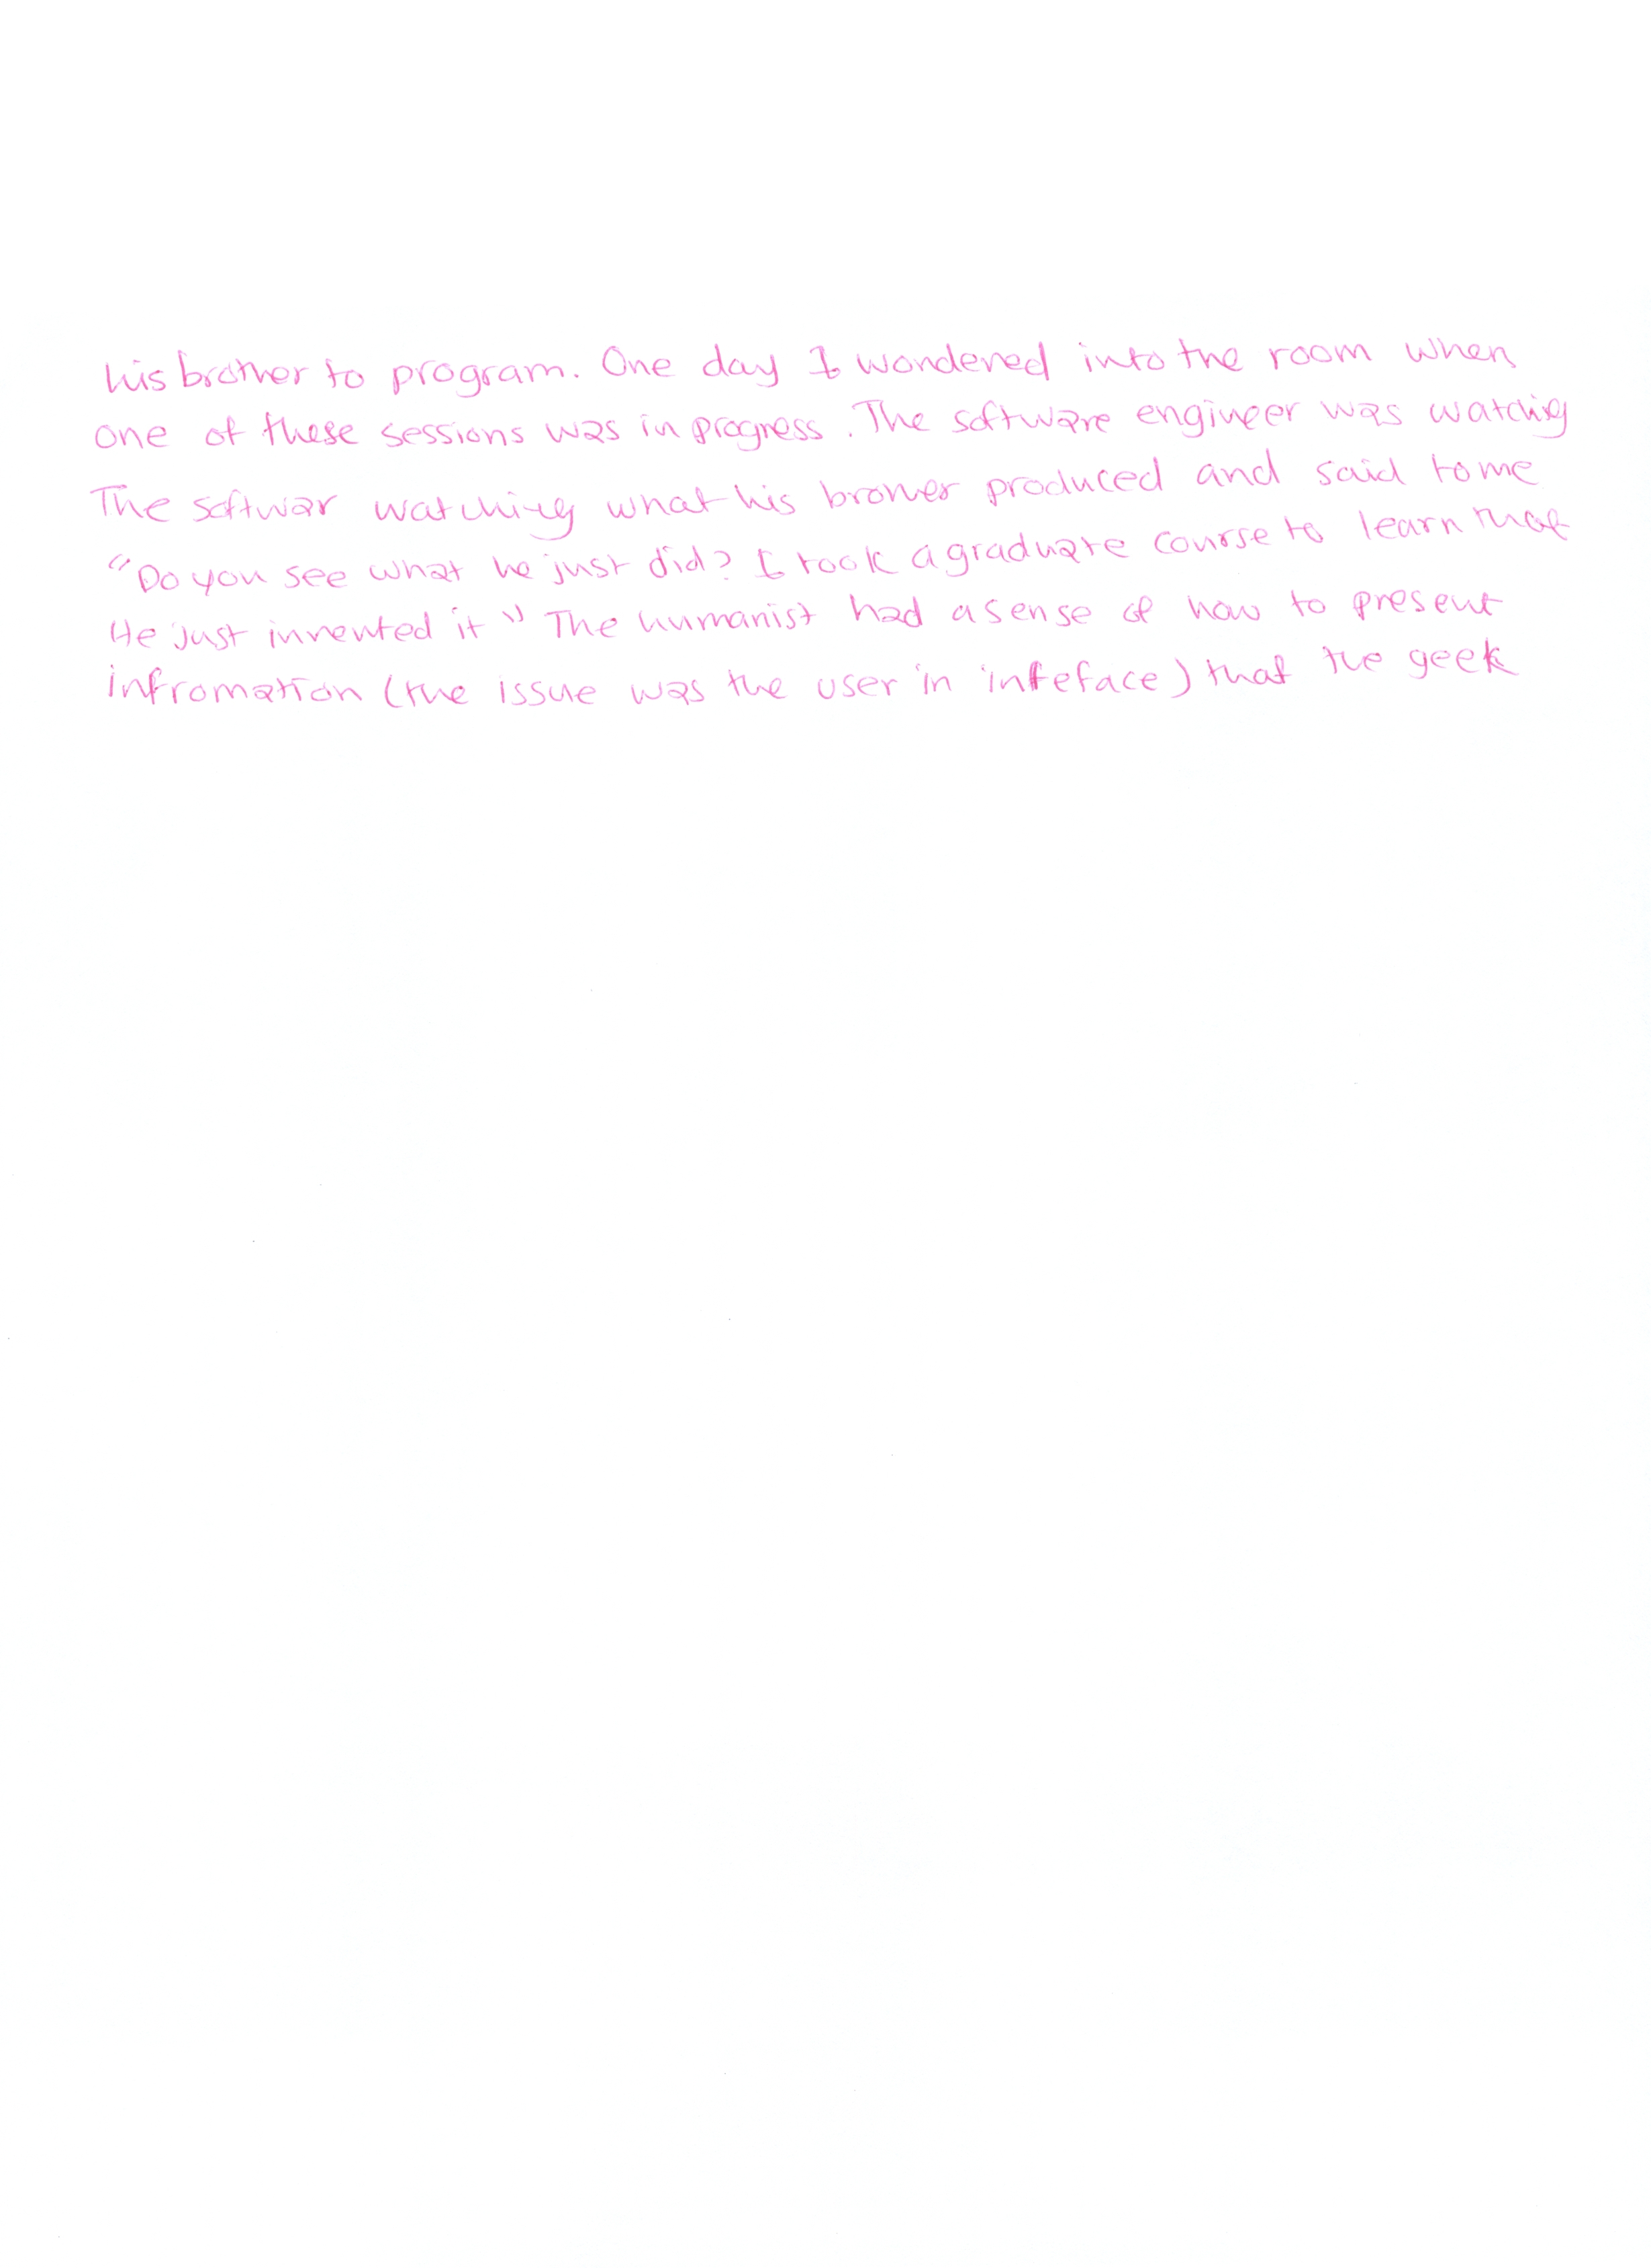 his brother to program. One day I wondered into the room when
one of these sessions was in progress. The software engineer was watching
The softwar watching what his brother produced and said to me
"Do you see what he just did? I took a graduate course to learn that
He just invented it" The humanist had a sense of how to present
infromation (the issue was the user in inteface) that the geek